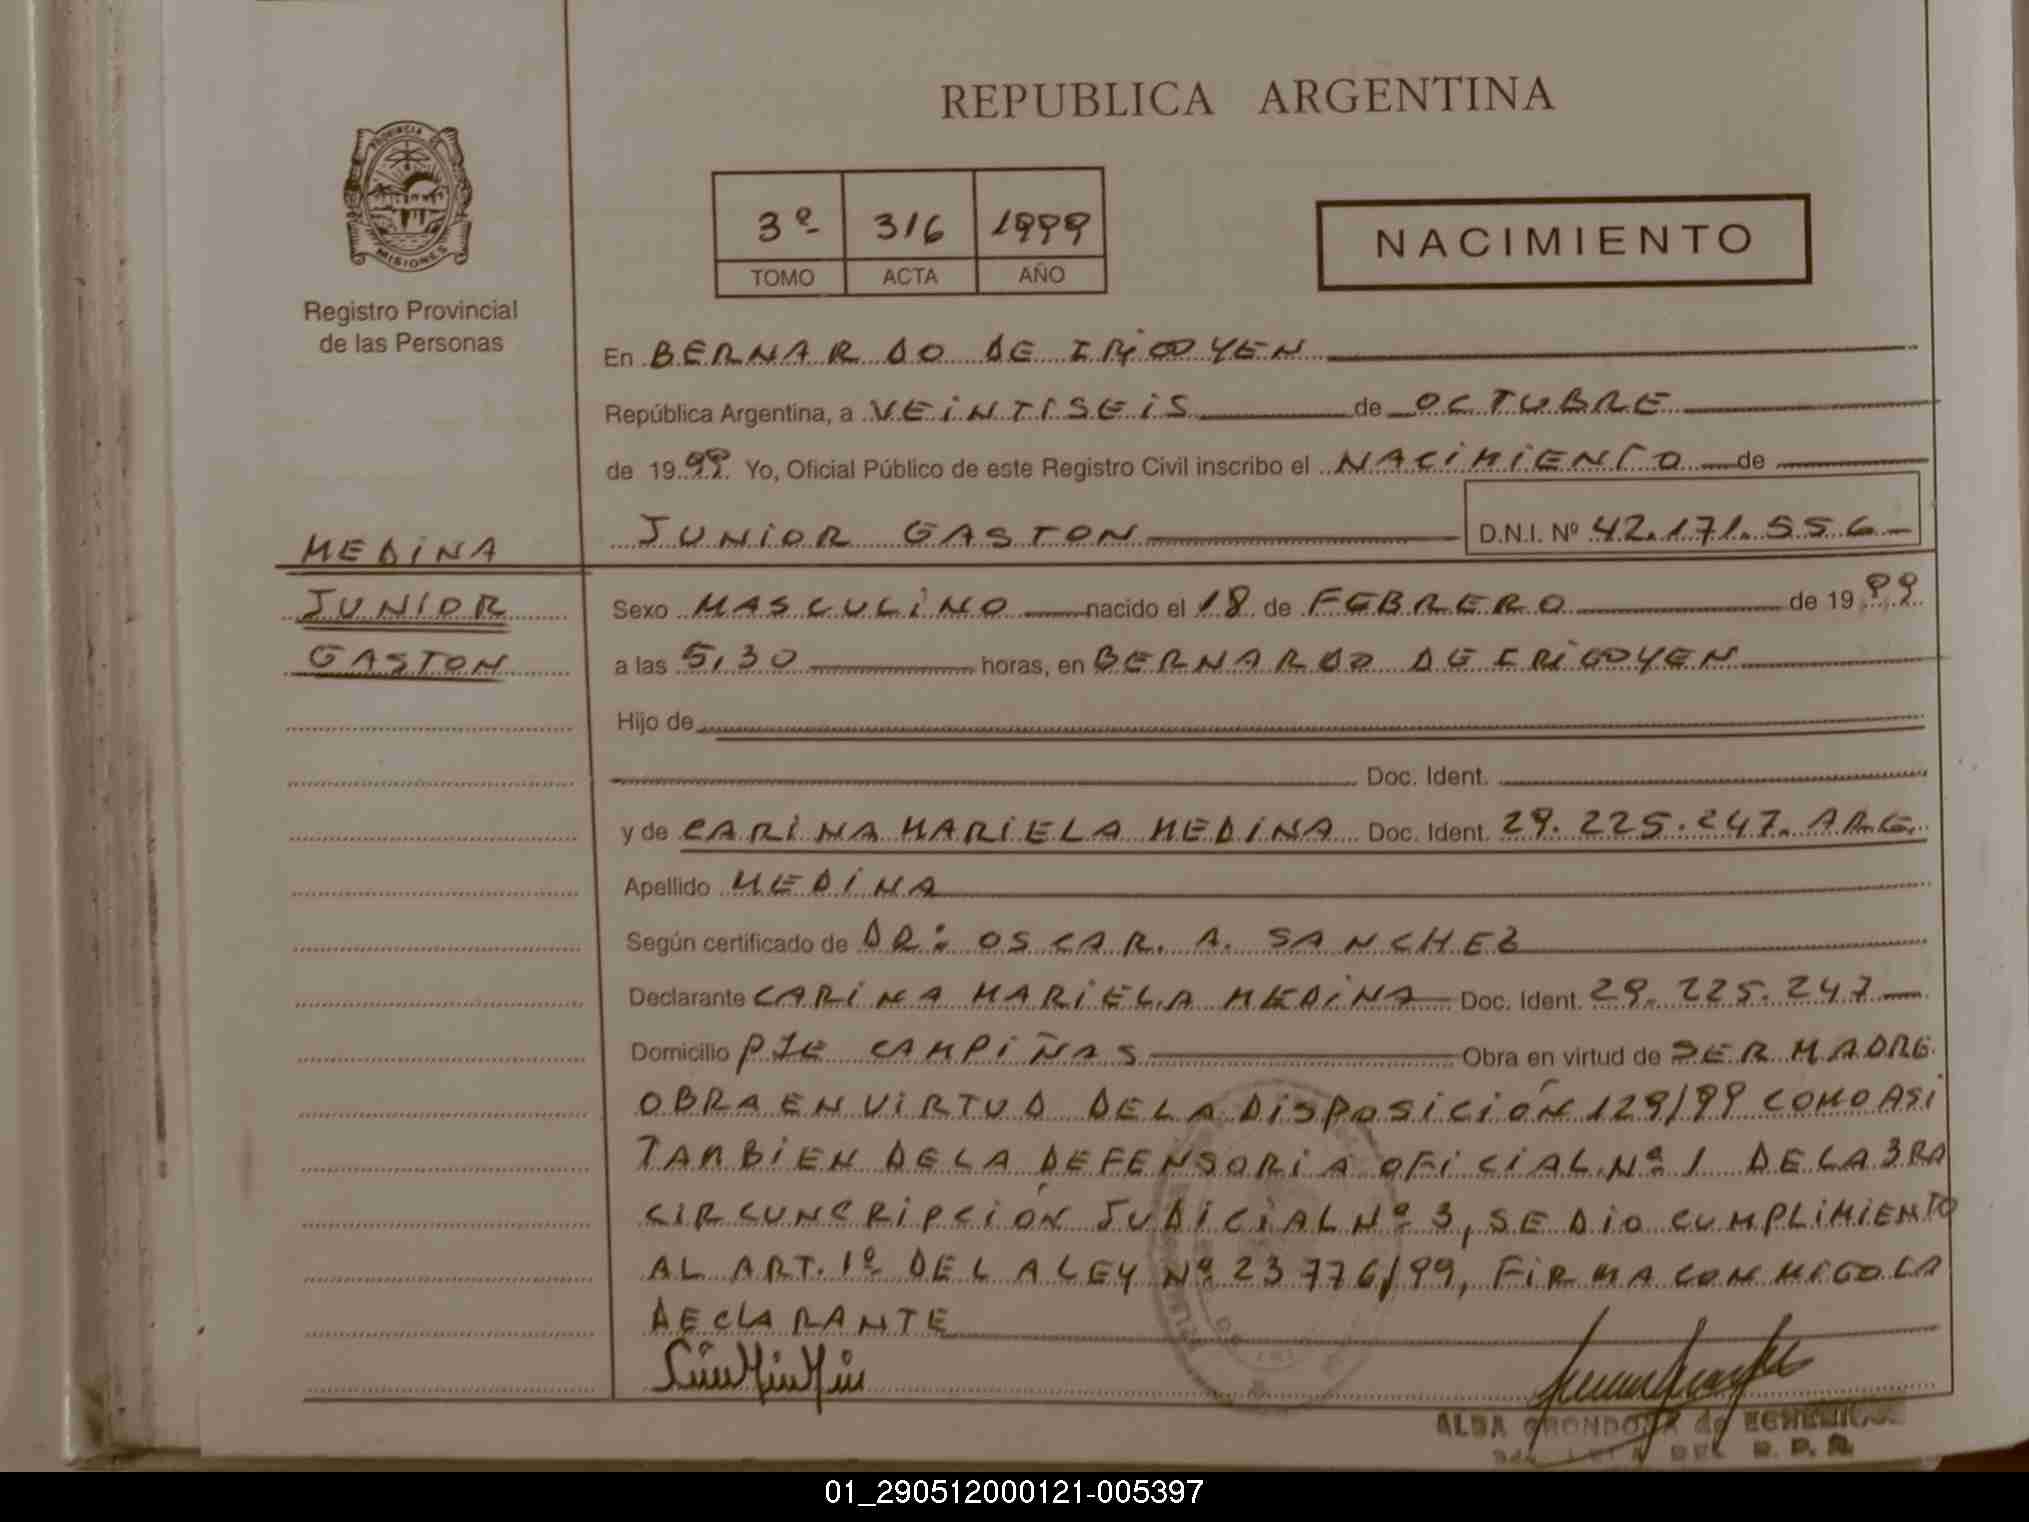 REPUBLICA ARGENTINA
PROVINCIA DE
MISIONES
Registro Provincial
de las Personas
3º 316 1999
TOMO ACTA AÑO
NACIMIENTO
En BERNARDO DE IRIGOYEN
República Argentina, a VEINTISEIS de OCTUBRE
de 1999. Yo, Oficial Público de este Registro Civil inscribo el NACIMIENTO de
JUNIOR GASTON D.N.I. Nº 42.171.556
MEDINA
JUNIOR
GASTON
Sexo MASCULINO nacido el 18 de FEBRERO de 1999
a las 5,30 horas, en BERNARDO DE IRIGOYEN
Hijo de
Doc. Ident.
y de CARINA MARIELA MEDINA Doc. Ident. 29.225.247. ARG.
Apellido MEDINA
Según certificado de DR: OSCAR. A. SANCHEZ
Declarante CARINA MARIELA MEDINA Doc. Ident. 29.225.247
Domicilio PJE CAMPIÑAS Obra en virtud de SER MADRE.
OBRA EN VIRTUD DE LA DISPOSICIÓN 129/99 COMO ASI
TAMBIEN DE LA DEFENSORIA OFICIAL Nº 1 DE LA 3RA
CIRCUNCRIPCIÓN JUDICIAL Nº 3, SE DIO CUMPLIMIENTO
AL ART. 1º DE LA LEY Nº 23776/99, FIRMA CONMIGO LA
DECLARANTE
ALBA GRONDONA de
01_290512000121-005397